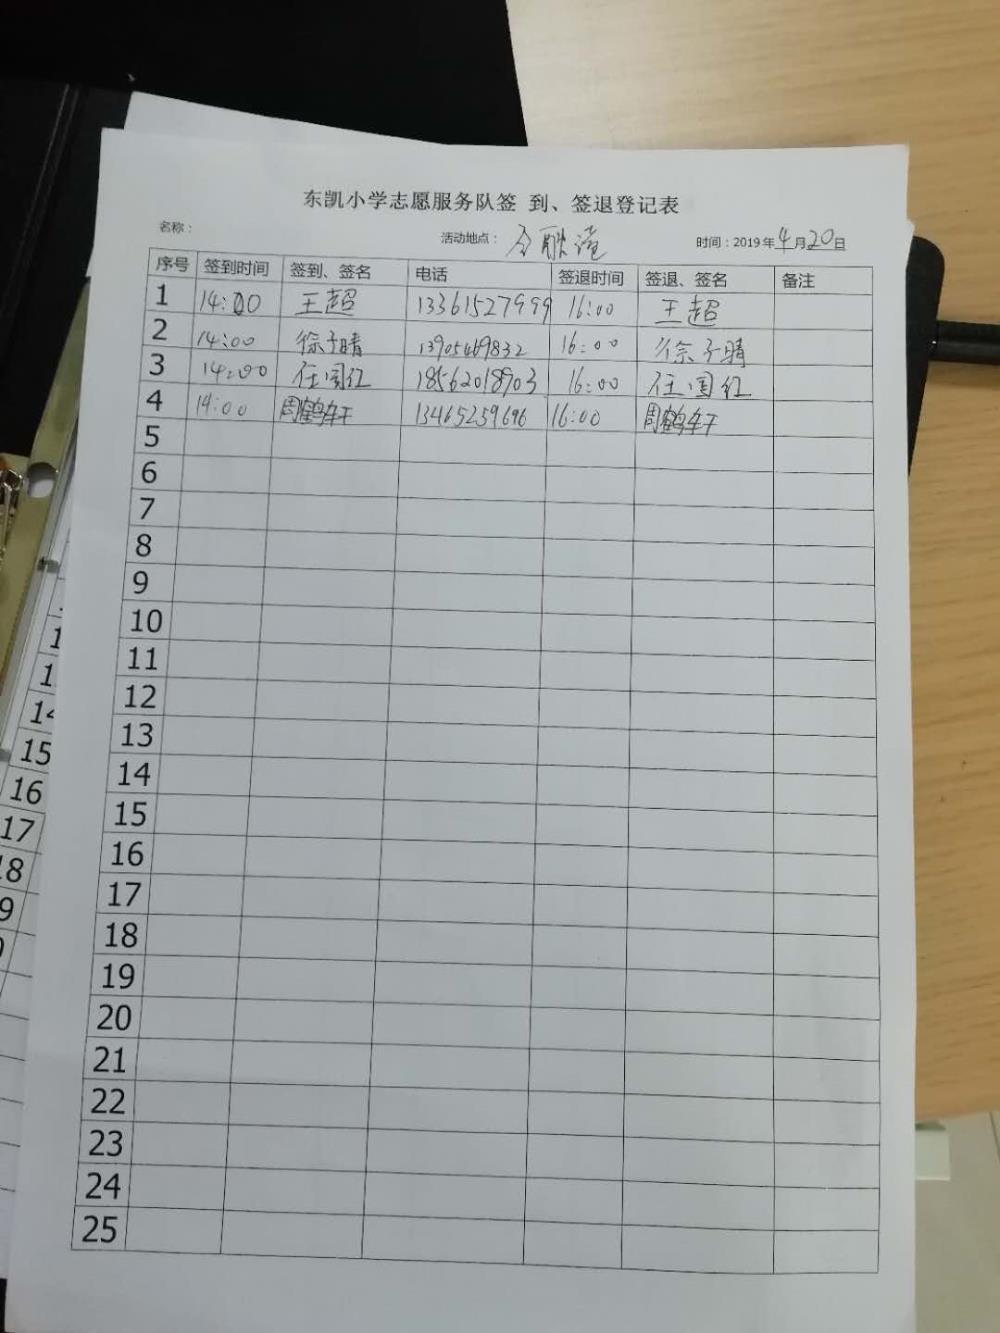 东凯小学志愿服务队签 到、签退登记表
名称： 活动地点： 时间：2019年4月20日
序号 签到时间 签到、签名 电话 签退时间 签退、签名 备注
1 14:00 王超 13361527999 16:00 王超
2 14:00 徐子晴 13905469832 16:00 徐子晴
3 14:00 任国红 18562018903 16:00 任国红
4 14:00 周鹤轩 13465259696 16:00 周鹤轩
5
6
7
8
9
10
11
12
13
14
15
16
17
18
19
20
21
22
23
24
25
14
15
16
17
18